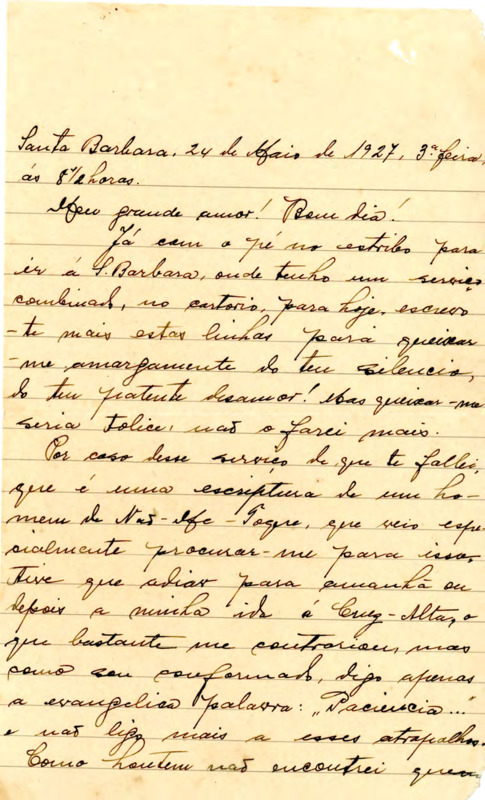 Santa Barbara, 24 de Maio de 1927, 3ª feira,
ás 8 1/2 horas.
Meu grande amor! Bom dia!
Já com o pé no estribo para
ir á S. Barbara, onde tenho um serviço
combinado, no cartorio, para hoje, escrevo
-te mais estas linhas para queixar
-me amargamente do teu silencio,
do teu patente desamor! Mas queixar-me
seria tolice, não o farei mais.
Por caso desse serviço de que te fallei,
que é uma escriptura de um ho-
mem de Não-Me-Toque, que veio espe-
cialmente procurar-me para isso,
tive que adiar para amanhã ou
depois a minha ida á Cruz-Alta, o
que bastante me contrariou, mas
como sou conformado, digo apenas
a evangelica palavra: "Paciencia..."
e não ligo mais a esses atrapalhos.
Como hontem não encontrei quem